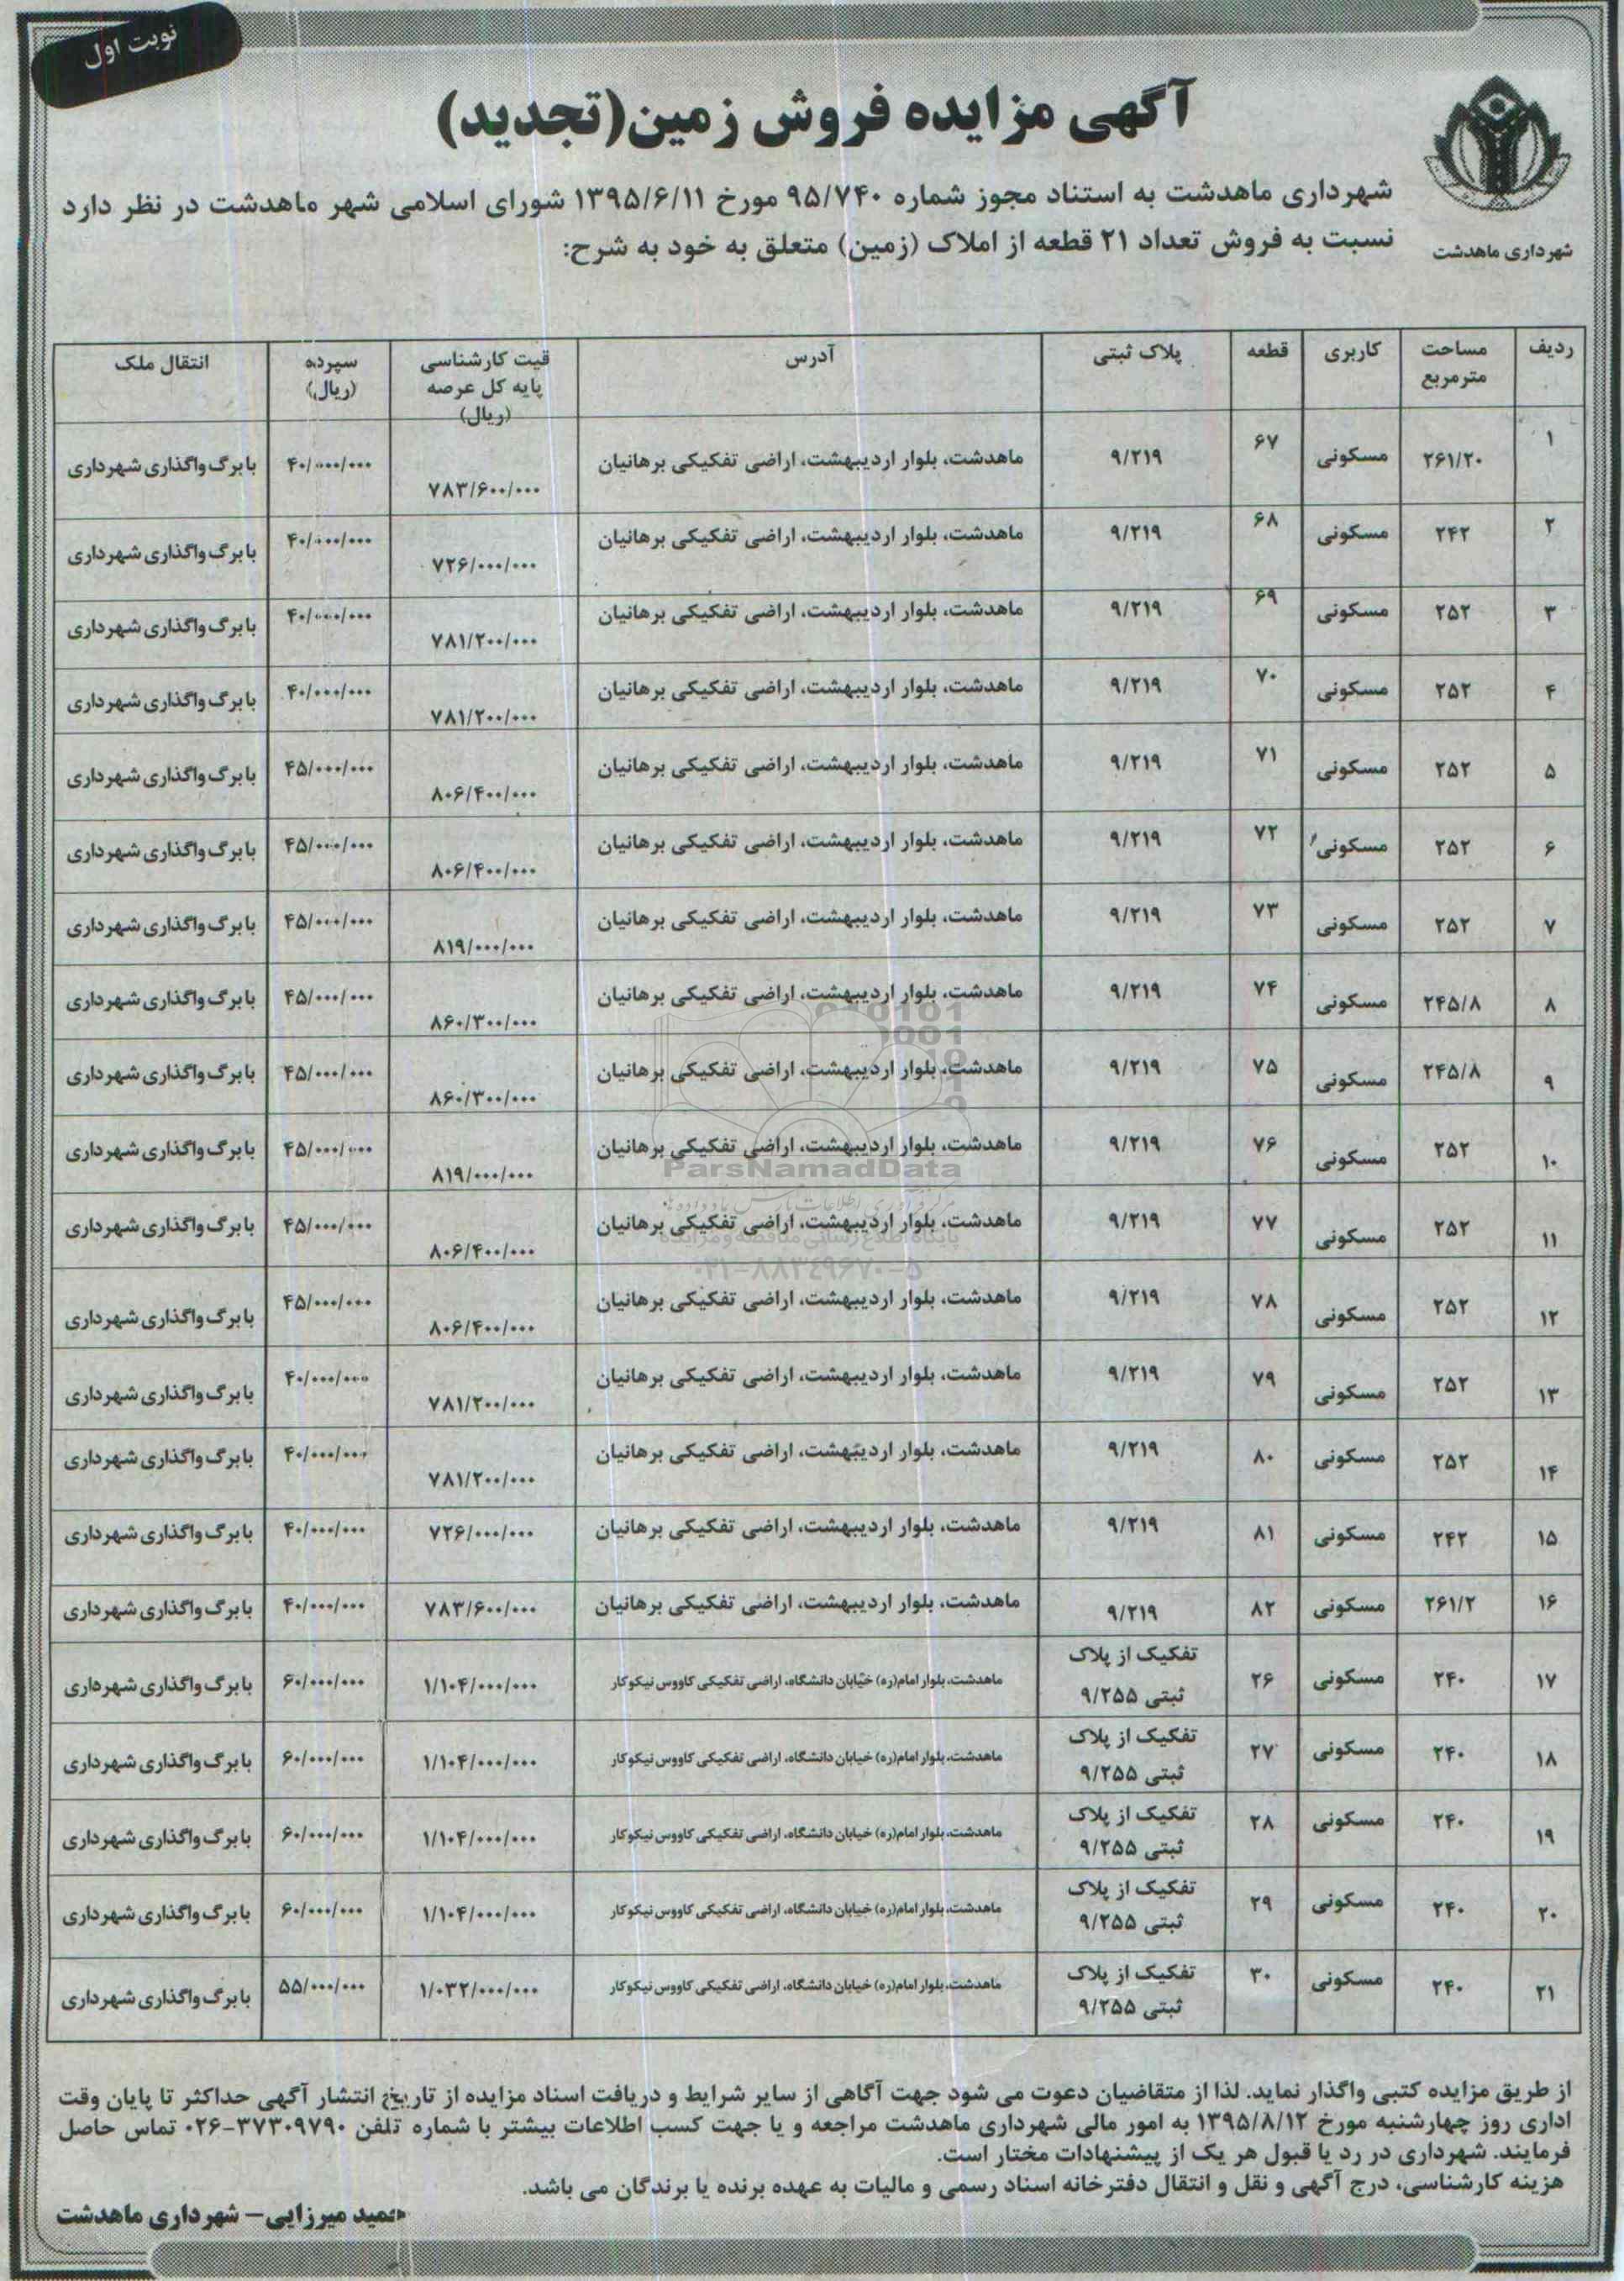 نوبت اول
آگهی مزایده فروش زمین(تجدید)
شهرداری ماهدشت
شهرداری ماهدشت به استناد مجوز شماره ۹۵/۷۴۰ مورخ ۱۳۹۵/۶/۱۱ شورای اسلامی شهر ماهدشت در نظر دارد
نسبت به فروش تعداد ۲۱ قطعه از املاک (زمین) متعلق به خود به شرح:
ردیف مساحت مترمربع کاربری قطعه پلاک ثبتی آدرس قیت کارشناسی پایه کل عرصه (ریال) سپرده (ریال) انتقال ملک
۱ ۲۶۱/۲۰ مسکونی ۶۷ ۹/۲۱۹ ماهدشت، بلوار اردیبهشت، اراضی تفکیکی برهانیان ۷۸۳/۶۰۰/۰۰۰ ۴۰/۰۰۰/۰۰۰ با برگ واگذاری شهرداری
۲ ۲۴۲ مسکونی ۶۸ ۹/۲۱۹ ماهدشت، بلوار اردیبهشت، اراضی تفکیکی برهانیان ۷۲۶/۰۰۰/۰۰۰ ۴۰/۰۰۰/۰۰۰ با برگ واگذاری شهرداری
۳ ۲۵۲ مسکونی ۶۹ ۹/۲۱۹ ماهدشت، بلوار اردیبهشت، اراضی تفکیکی برهانیان ۷۸۱/۲۰۰/۰۰۰ ۴۰/۰۰۰/۰۰۰ با برگ واگذاری شهرداری
۴ ۲۵۲ مسکونی ۷۰ ۹/۲۱۹ ماهدشت، بلوار اردیبهشت، اراضی تفکیکی برهانیان ۷۸۱/۲۰۰/۰۰۰ ۴۰/۰۰۰/۰۰۰ با برگ واگذاری شهرداری
۵ ۲۵۲ مسکونی ۷۱ ۹/۲۱۹ ماهدشت، بلوار اردیبهشت، اراضی تفکیکی برهانیان ۸۰۶/۴۰۰/۰۰۰ ۴۵/۰۰۰/۰۰۰ با برگ واگذاری شهرداری
۶ ۲۵۲ مسکونی ۷۲ ۹/۲۱۹ ماهدشت، بلوار اردیبهشت، اراضی تفکیکی برهانیان ۸۰۶/۴۰۰/۰۰۰ ۴۵/۰۰۰/۰۰۰ با برگ واگذاری شهرداری
۷ ۲۵۲ مسکونی ۷۳ ۹/۲۱۹ ماهدشت، بلوار اردیبهشت، اراضی تفکیکی برهانیان ۸۱۹/۰۰۰/۰۰۰ ۴۵/۰۰۰/۰۰۰ با برگ واگذاری شهرداری
۸ ۲۴۵/۸ مسکونی ۷۴ ۹/۲۱۹ ماهدشت، بلوار اردیبهشت، اراضی تفکیکی برهانیان ۸۶۰/۳۰۰/۰۰۰ ۴۵/۰۰۰/۰۰۰ با برگ واگذاری شهرداری
۹ ۲۴۵/۸ مسکونی ۷۵ ۹/۲۱۹ ماهدشت، بلوار اردیبهشت، اراضی تفکیکی برهانیان ۸۶۰/۳۰۰/۰۰۰ ۴۵/۰۰۰/۰۰۰ با برگ واگذاری شهرداری
۱۰ ۲۵۲ مسکونی ۷۶ ۹/۲۱۹ ماهدشت، بلوار اردیبهشت، اراضی تفکیکی برهانیان ۸۱۹/۰۰۰/۰۰۰ ۴۵/۰۰۰/۰۰۰ با برگ واگذاری شهرداری
ParsNamadData
۱۱ ۲۵۲ مسکونی ۷۷ ۹/۲۱۹ ماهدشت، بلوار اردیبهشت، اراضی تفکیکی برهانیان ۸۰۶/۴۰۰/۰۰۰ ۴۵/۰۰۰/۰۰۰ با برگ واگذاری شهرداری
پایگاه اطلاع رسانی مناقصه و مزایده
۰۲۱-۸۸۳۴۹۶۷۰-۵
۱۲ ۲۵۲ مسکونی ۷۸ ۹/۲۱۹ ماهدشت، بلوار اردیبهشت، اراضی تفکیکی برهانیان ۸۰۶/۴۰۰/۰۰۰ ۴۵/۰۰۰/۰۰۰ با برگ واگذاری شهرداری
۱۳ ۲۵۲ مسکونی ۷۹ ۹/۲۱۹ ماهدشت، بلوار اردیبهشت، اراضی تفکیکی برهانیان ۷۸۱/۲۰۰/۰۰۰ ۴۰/۰۰۰/۰۰۰ با برگ واگذاری شهرداری
۱۴ ۲۵۲ مسکونی ۸۰ ۹/۲۱۹ ماهدشت، بلوار اردیبهشت، اراضی تفکیکی برهانیان ۷۸۱/۲۰۰/۰۰۰ ۴۰/۰۰۰/۰۰۰ با برگ واگذاری شهرداری
۱۵ ۲۴۲ مسکونی ۸۱ ۹/۲۱۹ ماهدشت، بلوار اردیبهشت، اراضی تفکیکی برهانیان ۷۲۶/۰۰۰/۰۰۰ ۴۰/۰۰۰/۰۰۰ با برگ واگذاری شهرداری
۱۶ ۲۶۱/۲ مسکونی ۸۲ ۹/۲۱۹ ماهدشت، بلوار اردیبهشت، اراضی تفکیکی برهانیان ۷۸۳/۶۰۰/۰۰۰ ۴۰/۰۰۰/۰۰۰ با برگ واگذاری شهرداری
۱۷ ۲۴۰ مسکونی ۲۶ تفکیک از پلاک ثبتی ۹/۲۵۵ ماهدشت، بلوار امام(ره) خیابان دانشگاه، اراضی تفکیکی کاووس نیکوکار ۱/۱۰۴/۰۰۰/۰۰۰ ۶۰/۰۰۰/۰۰۰ با برگ واگذاری شهرداری
۱۸ ۲۴۰ مسکونی ۲۷ تفکیک از پلاک ثبتی ۹/۲۵۵ ماهدشت، بلوار امام(ره) خیابان دانشگاه، اراضی تفکیکی کاووس نیکوکار ۱/۱۰۴/۰۰۰/۰۰۰ ۶۰/۰۰۰/۰۰۰ با برگ واگذاری شهرداری
۱۹ ۲۴۰ مسکونی ۲۸ تفکیک از پلاک ثبتی ۹/۲۵۵ ماهدشت، بلوار امام(ره) خیابان دانشگاه، اراضی تفکیکی کاووس نیکوکار ۱/۱۰۴/۰۰۰/۰۰۰ ۶۰/۰۰۰/۰۰۰ با برگ واگذاری شهرداری
۲۰ ۲۴۰ مسکونی ۲۹ تفکیک از پلاک ثبتی ۹/۲۵۵ ماهدشت، بلوار امام(ره) خیابان دانشگاه، اراضی تفکیکی کاووس نیکوکار ۱/۱۰۴/۰۰۰/۰۰۰ ۶۰/۰۰۰/۰۰۰ با برگ واگذاری شهرداری
۲۱ ۲۴۰ مسکونی ۳۰ تفکیک از پلاک ثبتی ۹/۲۵۵ ماهدشت، بلوار امام(ره) خیابان دانشگاه، اراضی تفکیکی کاووس نیکوکار ۱/۰۳۲/۰۰۰/۰۰۰ ۵۵/۰۰۰/۰۰۰ با برگ واگذاری شهرداری
از طریق مزایده کتبی واگذار نماید. لذا از متقاضیان دعوت می شود جهت آگاهی از سایر شرایط و دریافت اسناد مزایده از تاریخ انتشار آگهی حداکثر تا پایان وقت
اداری روز چهارشنبه مورخ ۱۳۹۵/۸/۱۲ به امور مالی شهرداری ماهدشت مراجعه و یا جهت کسب اطلاعات بیشتر با شماره تلفن ۳۷۳۰۹۷۹۰-۰۲۶ تماس حاصل
فرمایند. شهرداری در رد یا قبول هر یک از پیشنهادات مختار است.
هزینه کارشناسی، درج آگهی و نقل و انتقال دفترخانه اسناد رسمی و مالیات به عهده برنده یا برندگان می باشد.
میرزایی- شهرداری ماهدشت